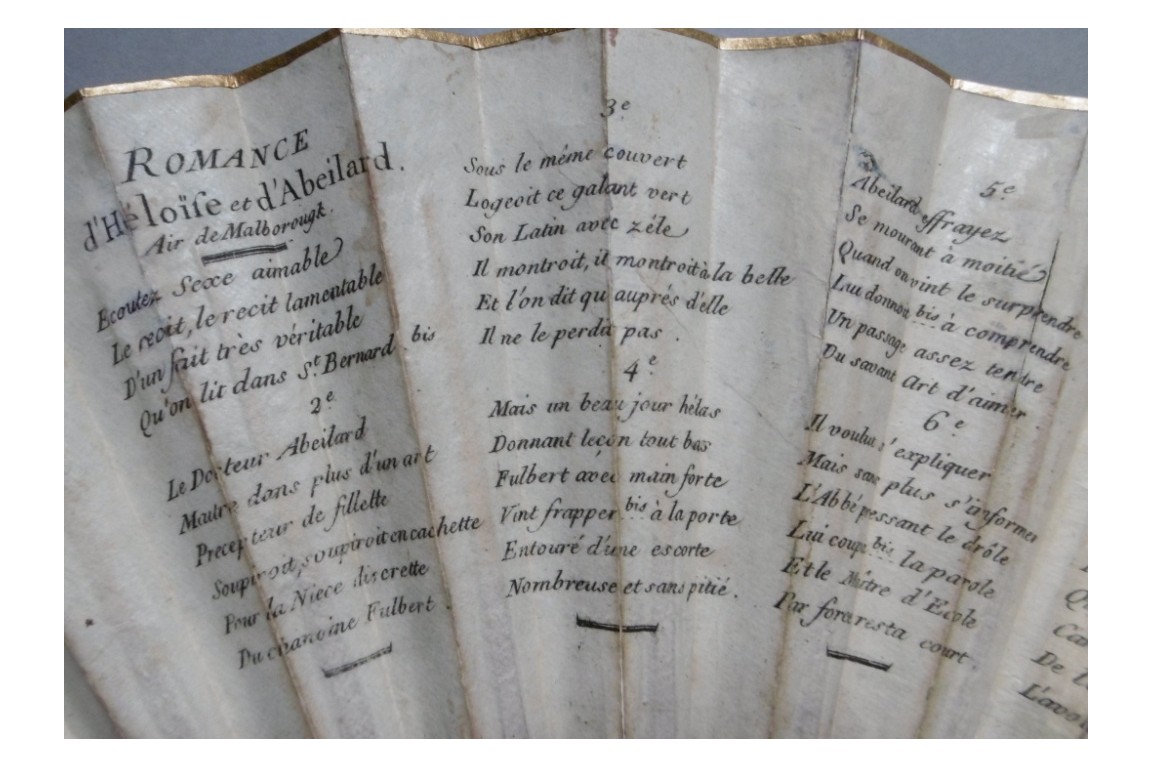 ROMANCE
d'Héloïse et d'Abeilard.
Air de Malborougk.
Ecoutez Sexe aimable
Le recit, le recit lamentable
D'un fait très véritable
Qu'on lit dans St. Bernard. bis
2e
Le Docteur Abeilard
Maitre dans plus d'un art
Precepteur de fillette
Soupiroit, soupiroit en cachette
Pour la Niece discrette
Du chanoine Fulbert.
3e
Sous le même couvert
Logeoit ce galant vert
Son Latin avec zéle
Il montroit, il montroit à la belle
Et l'on dit qu'auprés d'elle
Il ne le perdit pas.
4e
Mais un beau jour hélas
Donnant leçon tout bas
Fulbert avec main forte
Vint frapper bis à la porte
Entouré d'une escorte
Nombreuse et sans pitié.
5e
Abeilard effrayez
Se mourant à moitié
Quand on vint le surprendre
Lui donnoit bis à comprendre
Un passage assez tendre
Du savant art d'aimer.
6e
Il voulut s'expliquer
Mais sans plus s'informer
L'Abbé pessant le drôle
Lui coupe bis la parole
Et le Maitre d'Ecole
Par force resta court.
De l
L'avo